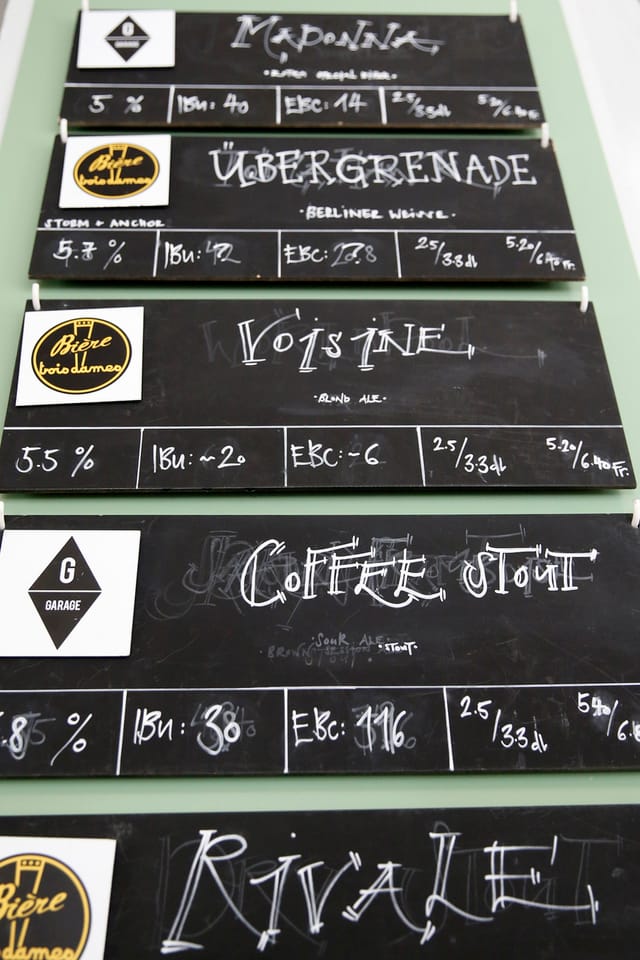 G
GARAGE
MADONNA
5 %
IBU: 40
EBC: 14
2.5/3.3dl
5.20/6.40 Fr.
Bière
trois dames
ÜBERGRENADE
·BERLINER WEISSE·
STORM & ANCHOR
5.7 %
IBU:
EBC:
2.5/3.3dl
5.20/6.40 Fr.
Bière
trois dames
VOISINE
·BLOND ALE·
5.5 %
IBU: ~20
EBC: ~6
2.5/3.3dl
5.20/6.40 Fr.
G
GARAGE
COFFEE STOUT
·STOUT·
.8 %
IBU: 30
EBC: 116
2.5/3.3dl
Bière
dames
RIVALE